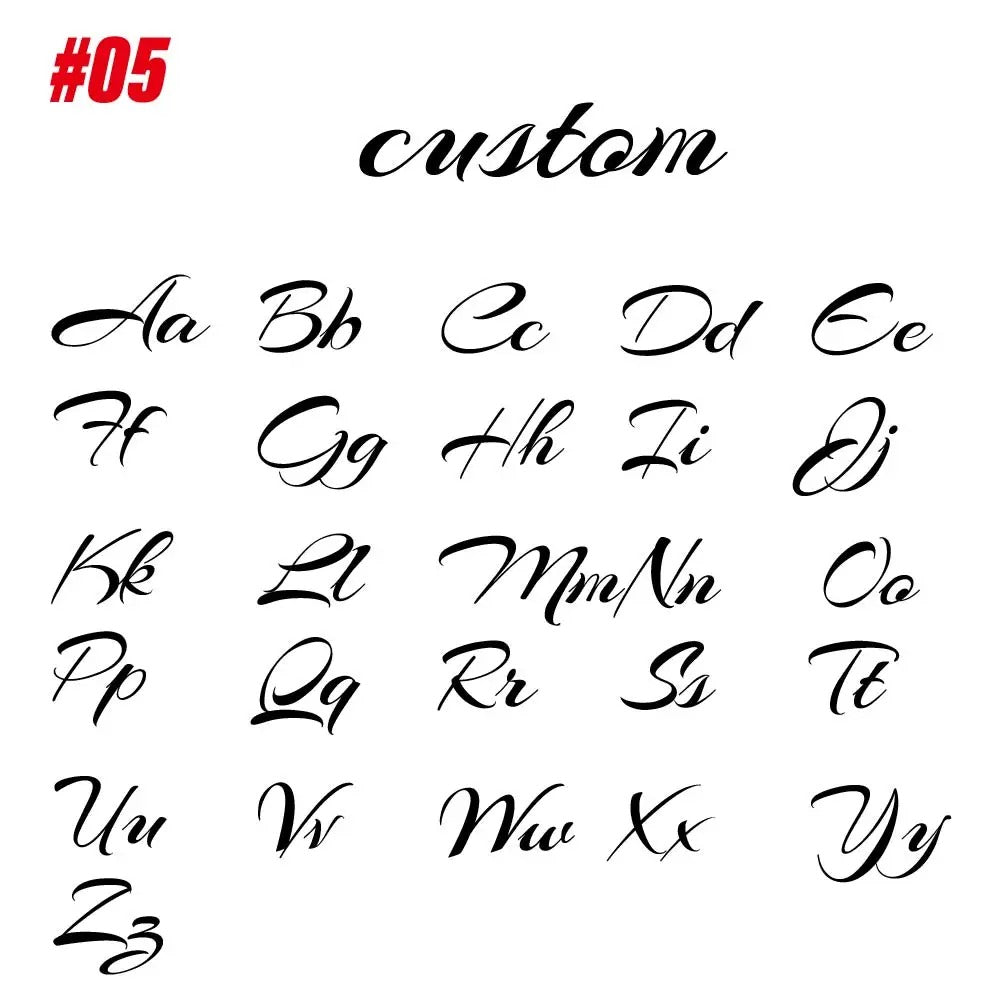 #05
custom
Aa Bb Cc Dd Ee
Ff Gg Hh Ii Jj
Kk Ll Mm Nn Oo
Pp Qq Rr Ss Tt
Uu Vv Ww Xx Yy
Zz